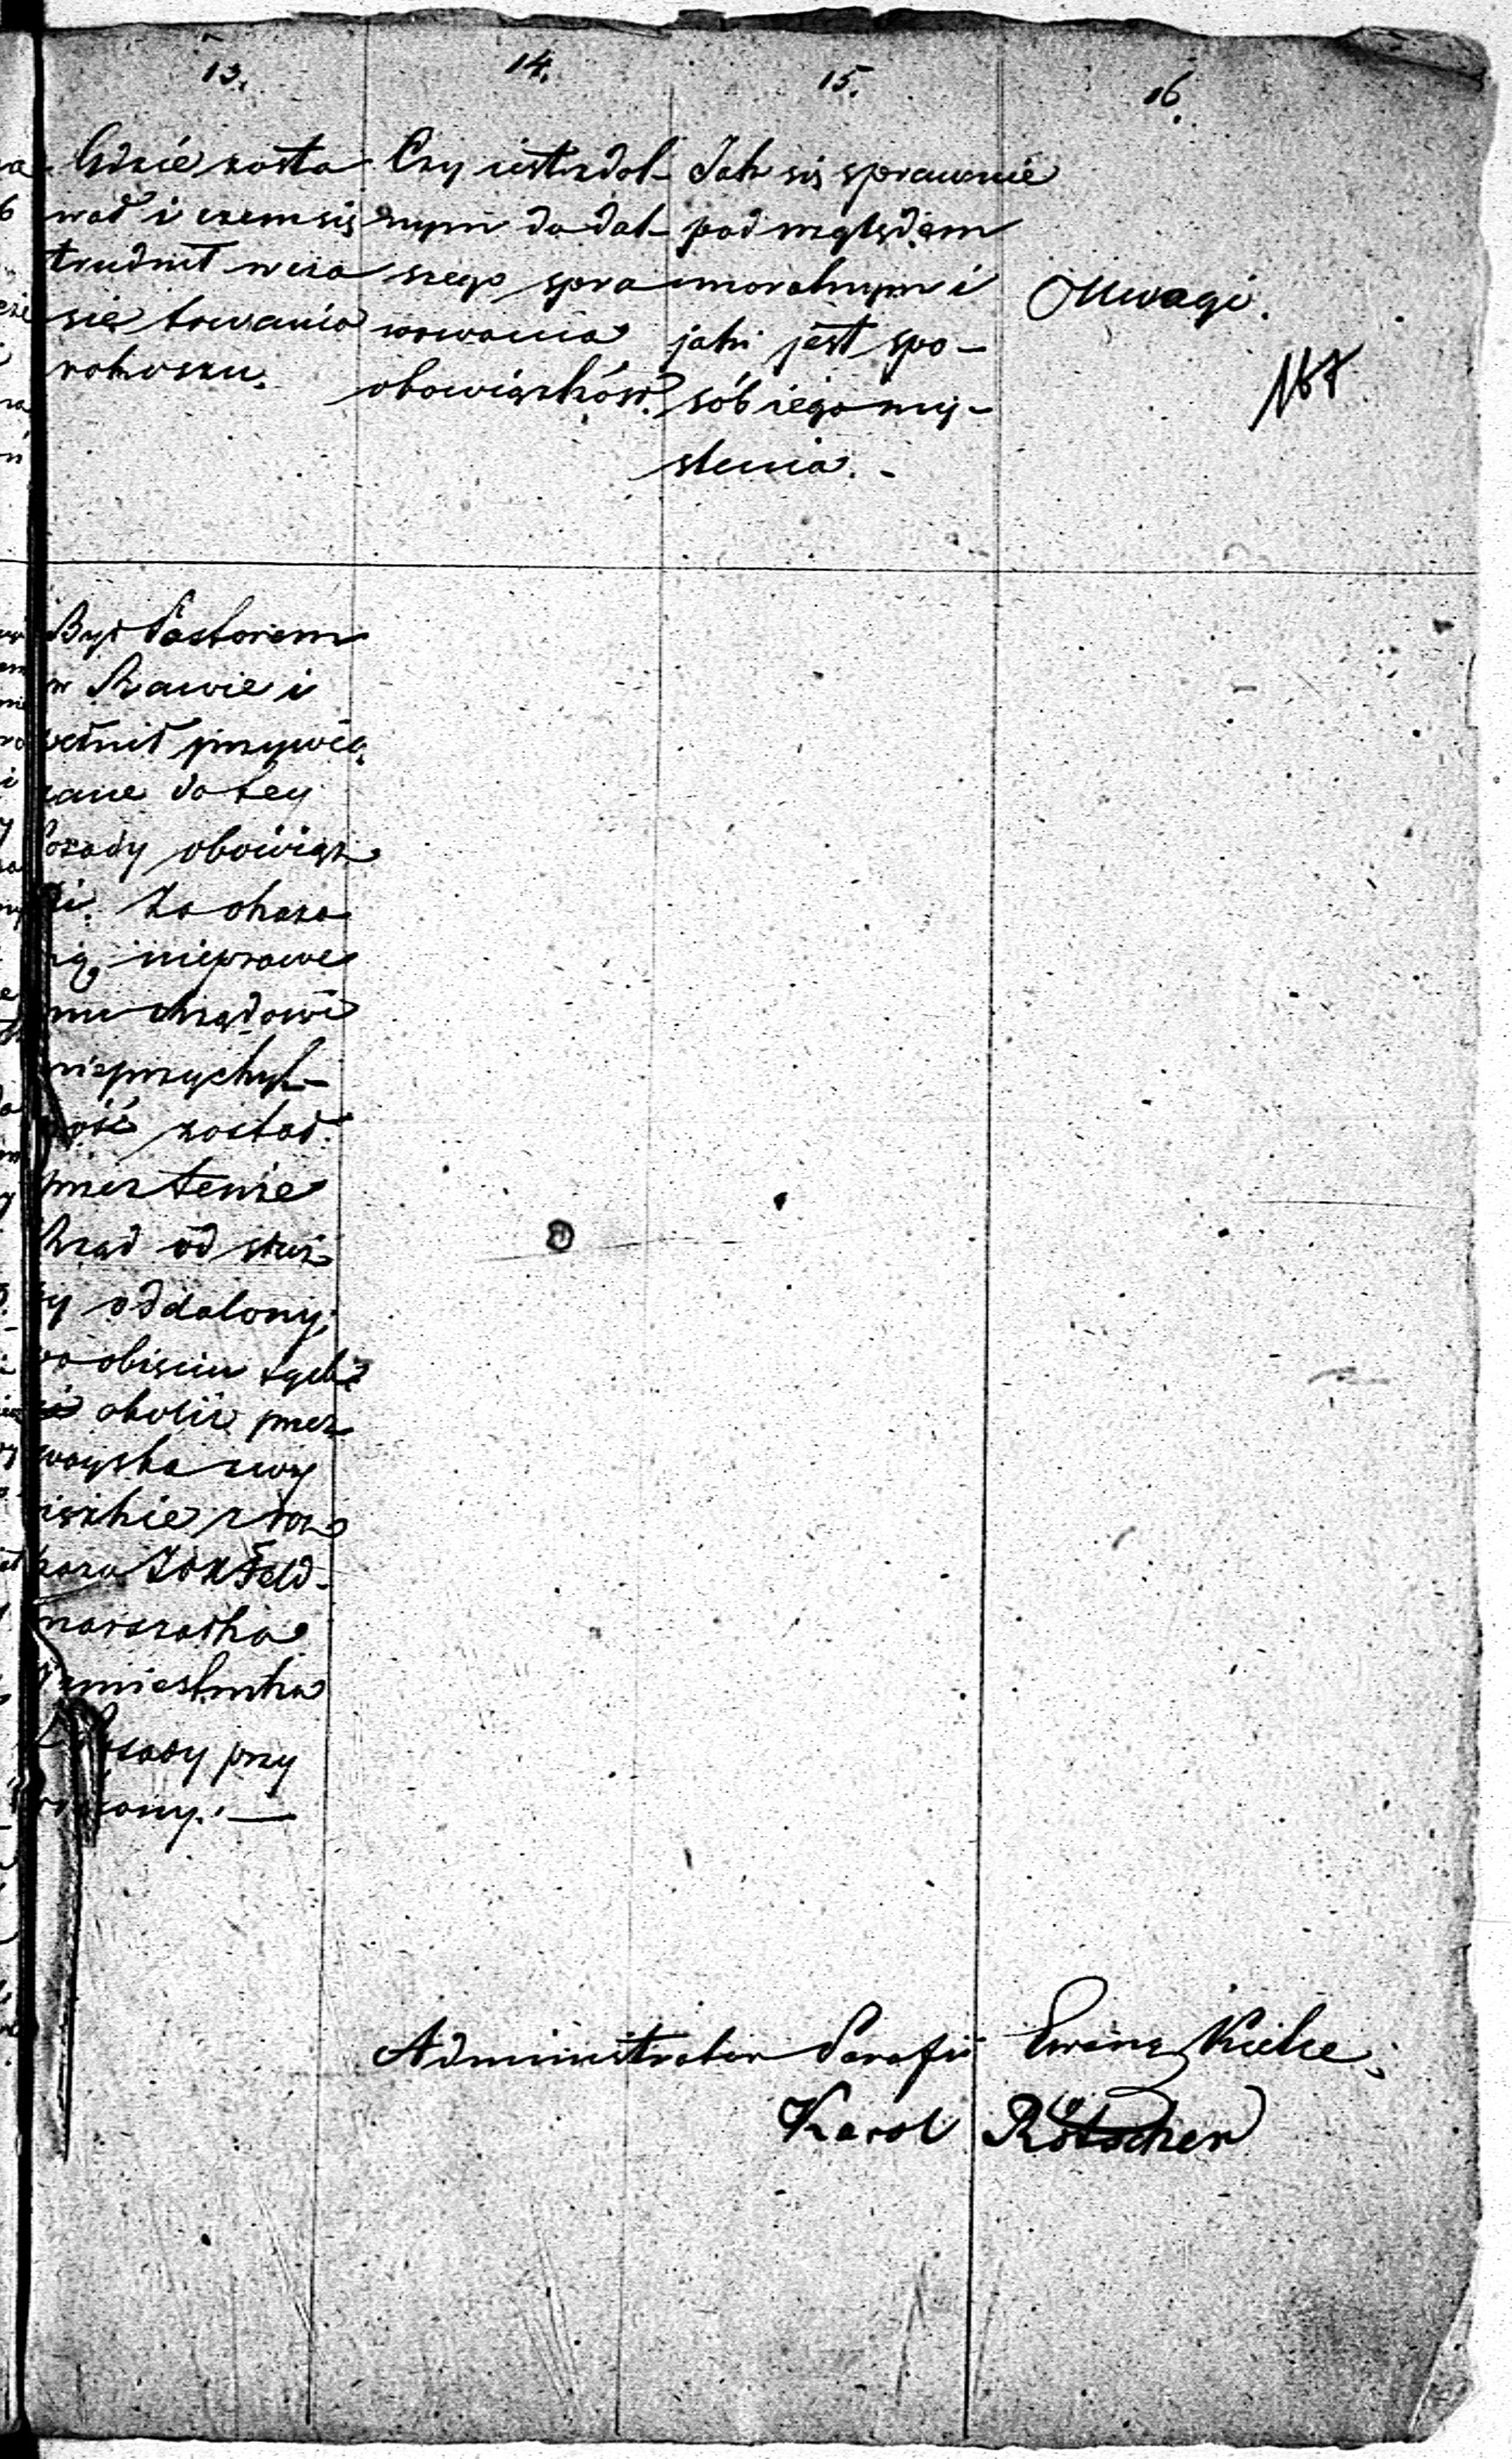 13.
Gdzie zosta
wał i czem się
trudnił w cza
sie trwania
rokoszu.
14.
Czy iest zdol-
nym do dal-
szego spra
wowania
obowiązków?
15.
Jak się sprawuie
pod względem
moralnym i
jaki jest spo-
sób iego my-
slenia. -
16.
Uwagi.
167
Był Pastorem
w Rawie i
pełnił przywią
zane do tey
Posady obowiąz
ki. Za okaza
ną nieprawe
mu Rządowi
nieprzychyl-
ność został
przez tenże
Rząd od służ
by oddalony;
po obięciu tychże
okolic przez
woyska zwy
cięzkie z roz
kazu JOX Feld-
marszałka
Namiestnika
do Posady przy
wrócony. —
Administrator Parafii Ewang. Kielce;
Karol Rötscher